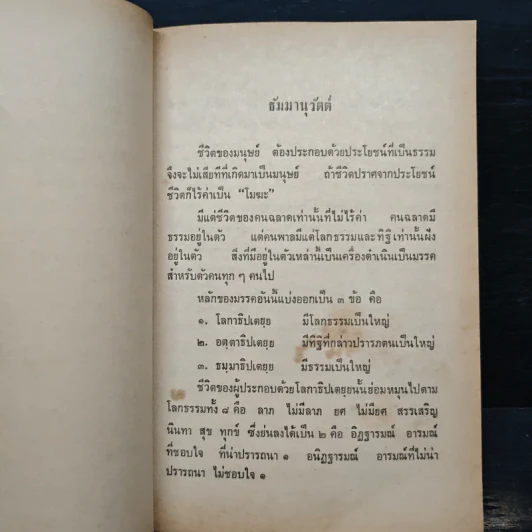 ธัมมานุวัตต์
ชีวิตของมนุษย์ ต้องประกอบด้วยประโยชน์ที่เป็นธรรม
จึงจะไม่เสียทีที่เกิดมาเป็นมนุษย์ ถ้าชีวิตปราศจากประโยชน์
ชีวิตก็ไร้ค่าเป็น “โมฆะ”
มีแต่ชีวิตของคนฉลาดเท่านั้นที่ไม่ไร้ค่า คนฉลาดมี
ธรรมอยู่ในตัว แต่คนพาลมีแต่โลกธรรมและทิฐิเท่านั้นฝัง
อยู่ในตัว สิ่งที่มีอยู่ในตัวเหล่านี้เป็นเครื่องดำเนินเป็นมรรค
สำหรับตัวคนทุก ๆ คนไป
หลักของมรรคอันนี้แบ่งออกเป็น ๓ ข้อ คือ
๑. โลกาธิปเตยฺย มีโลกธรรมเป็นใหญ่
๒. อตฺตาธิปเตยฺย มีทิฐิที่กล่าวปรารภตนเป็นใหญ่
๓. ธมฺมาธิปเตยฺย มีธรรมเป็นใหญ่
ชีวิตของผู้ประกอบด้วยโลกาธิปเตยฺยนั้นย่อมหมุนไปตาม
โลกธรรมทั้ง ๘ คือ ลาภ ไม่มีลาภ ยศ ไม่มียศ สรรเสริญ
นินทา สุข ทุกข์ ซึ่งย่นลงได้เป็น ๒ คือ อิฏฐารมณ์ อารมณ์
ที่ชอบใจ ที่น่าปรารถนา ๑ อนิฏฐารมณ์ อารมณ์ที่ไม่น่า
ปรารถนา ไม่ชอบใจ ๑